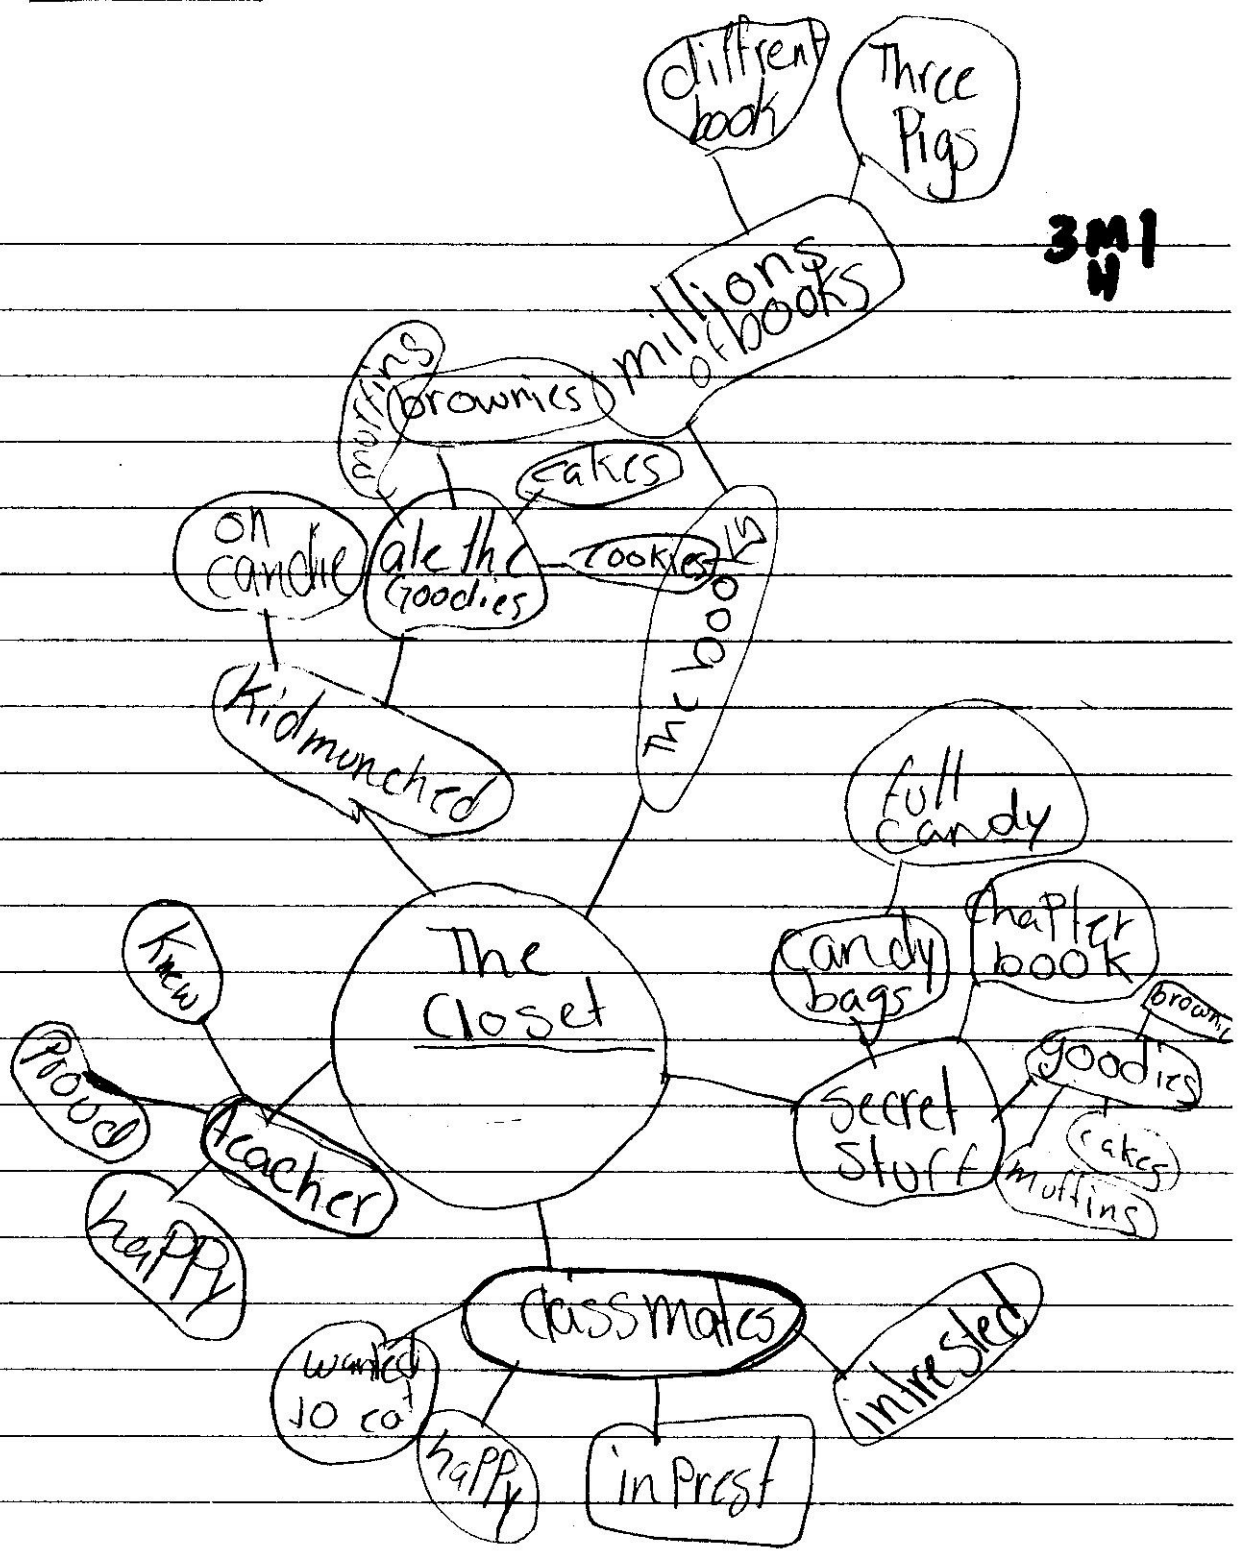 diffrent
book
Three
Pigs
3M1
H
millions
of books
muffins
brownies
cakes
on
candie
ate the
Goodies
cookies
The books
Kid munched
full
candy
candy
bags
chapter
book
brownie
goodies
cakes
muffins
secret
stuff
The
Closet
Knew
Proud
teacher
happy
classmates
wanted
to eat
happy
inPrest
intrested